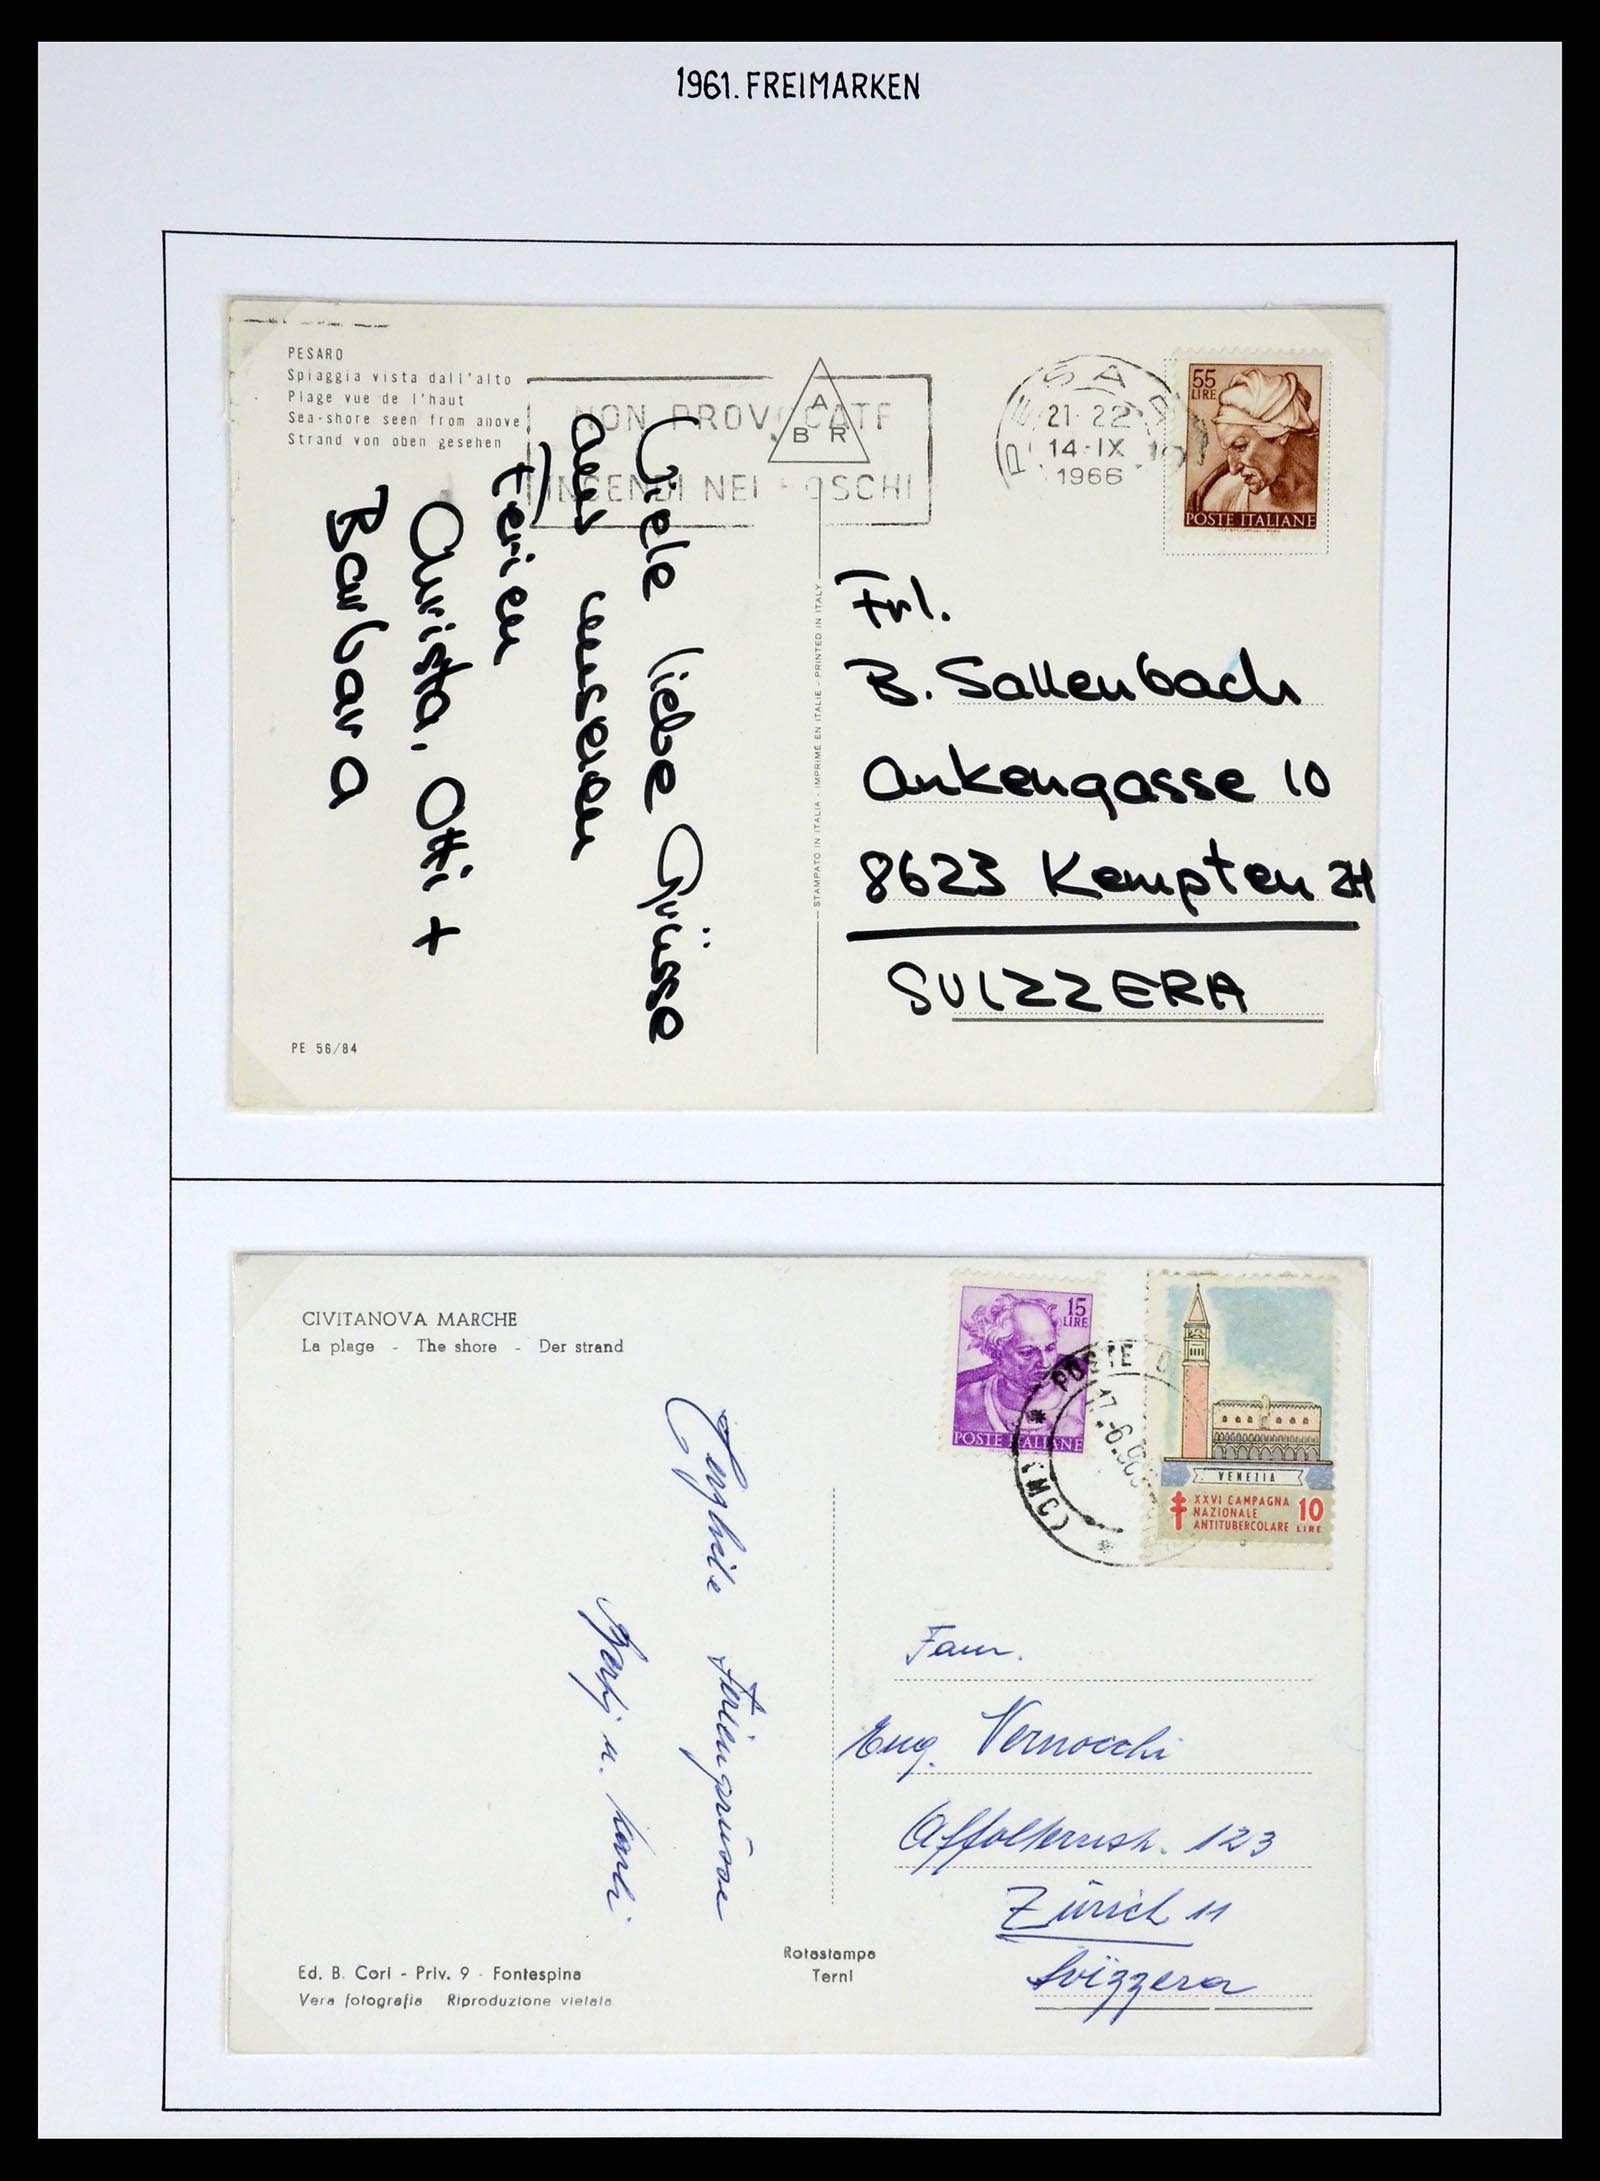 1961. FREIMARKEN
PESARO
Spiaggia vista dall'alto
Plage vue de l'haut
Sea-shore seen from anove
Strand von oben gesehen
NON PROVOCATE
INCENDI NEI BOSCHI
A
B R
PESARO
21-22
14-IX
1966
55
LIRE
POSTE ITALIANE
Viele liebe Grüsse
aus unseren
Ferien
Christa, Otti +
Barbara
STAMPATO IN ITALIA - IMPRIMÉ EN ITALIE - PRINTED IN ITALY
Frl.
B. Sallenbach
Ankengasse 10
8623 Kempten ZH
SVIZZERA
PE 56/84
CIVITANOVA MARCHE
La plage - The shore - Der strand
15
LIRE
POSTE ITALIANE
(MC)
VENEZIA
XXVI CAMPAGNA
NAZIONALE
ANTITUBERCOLARE
10
LIRE
Feriengrüsse
u.
Fam.
Eug. Vernocchi
Affolternstr. 123
Zürich 11
Svizzera
Rotostampa
Terni
Ed. B. Cori - Priv. 9 - Fontespina
Vera fotografia Riproduzione vietata